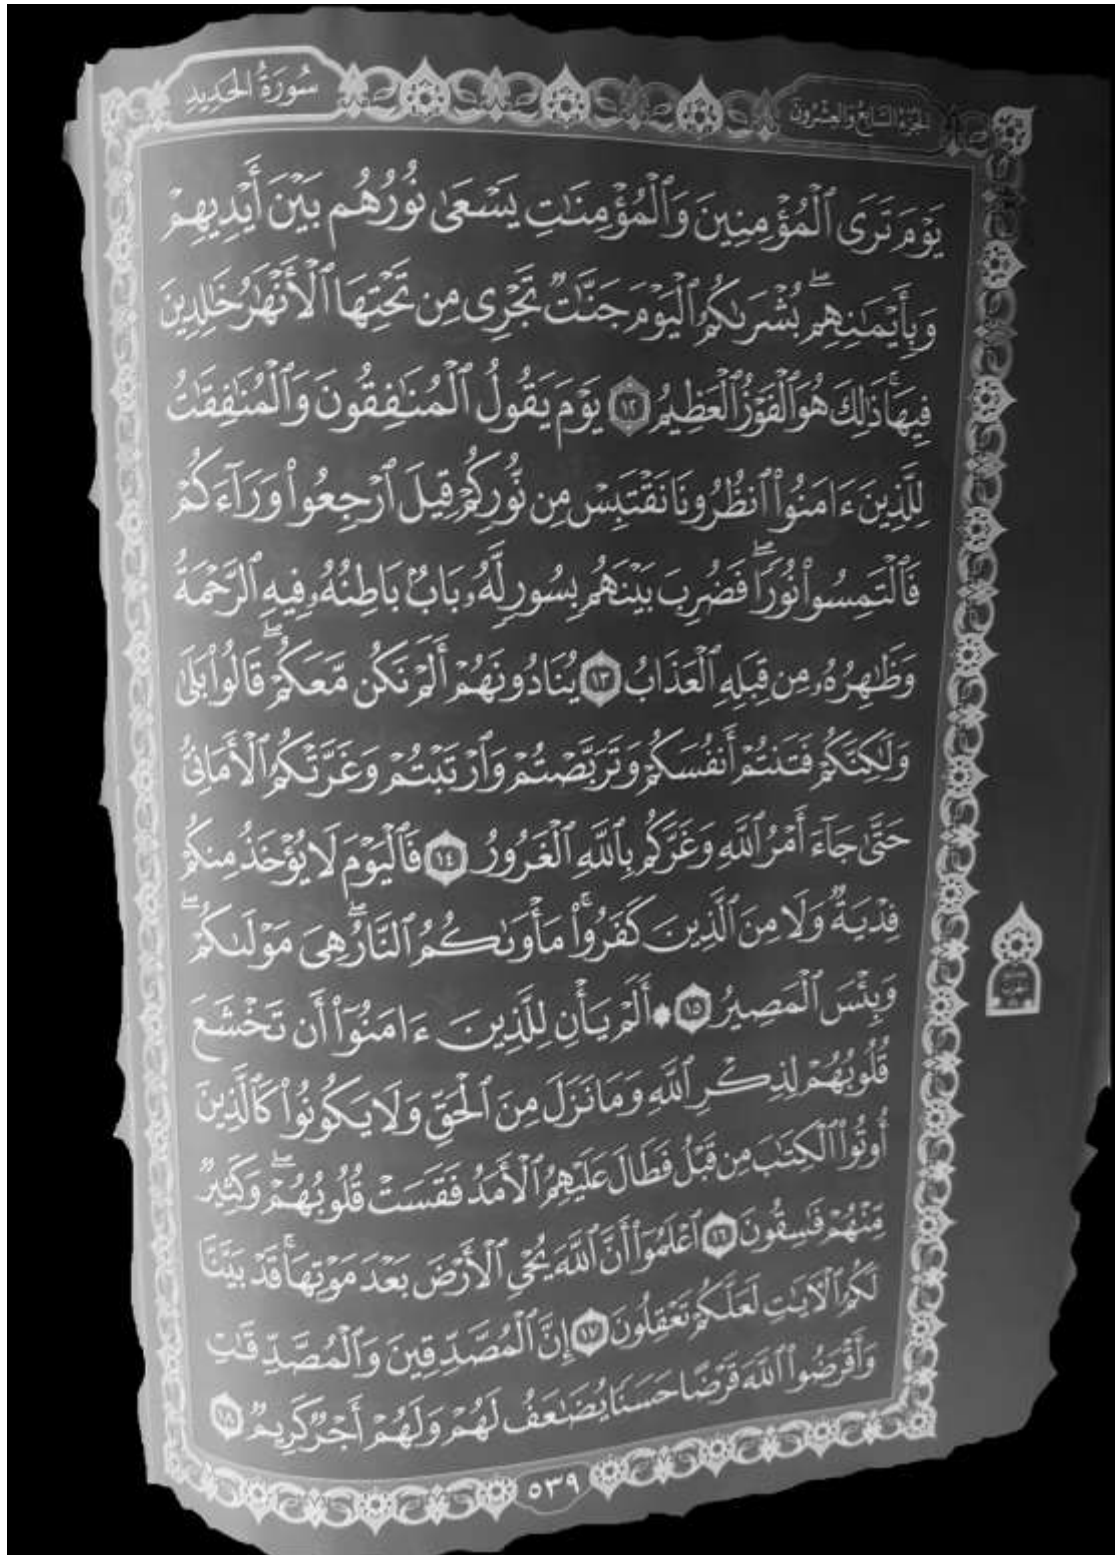 سُورَةُ الْحَدِيدِ
الجُزْءُ السَّابِعُ وَالعِشْرُونَ
يَوْمَ تَرَى ٱلْمُؤْمِنِينَ وَٱلْمُؤْمِنَٰتِ يَسْعَىٰ نُورُهُم بَيْنَ أَيْدِيهِمْ
وَبِأَيْمَٰنِهِمۖ بُشْرَىٰكُمُ ٱلْيَوْمَ جَنَّٰتٌ تَجْرِى مِن تَحْتِهَا ٱلْأَنْهَٰرُ خَٰلِدِينَ
فِيهَاۚ ذَٰلِكَ هُوَ ٱلْفَوْزُ ٱلْعَظِيمُ ١٢ يَوْمَ يَقُولُ ٱلْمُنَٰفِقُونَ وَٱلْمُنَٰفِقَٰتُ
لِلَّذِينَ ءَامَنُوا۟ ٱنظُرُونَا نَقْتَبِسْ مِن نُّورِكُمْ قِيلَ ٱرْجِعُوا۟ وَرَآءَكُمْ
فَٱلْتَمِسُوا۟ نُورًاۖ فَضُرِبَ بَيْنَهُم بِسُورٍ لَّهُۥ بَابٌۢ بَاطِنُهُۥ فِيهِ ٱلرَّحْمَةُ
وَظَٰهِرُهُۥ مِن قِبَلِهِ ٱلْعَذَابُ ١٣ يُنَادُونَهُمْ أَلَمْ نَكُن مَّعَكُمْۖ قَالُوا۟ بَلَىٰ
وَلَٰكِنَّكُمْ فَتَنتُمْ أَنفُسَكُمْ وَتَرَبَّصْتُمْ وَٱرْتَبْتُمْ وَغَرَّتْكُمُ ٱلْأَمَانِىُّ
حَتَّىٰ جَآءَ أَمْرُ ٱللَّهِ وَغَرَّكُم بِٱللَّهِ ٱلْغَرُورُ ١٤ فَٱلْيَوْمَ لَا يُؤْخَذُ مِنكُمْ
فِدْيَةٌ وَلَا مِنَ ٱلَّذِينَ كَفَرُوا۟ۚ مَأْوَىٰكُمُ ٱلنَّارُۖ هِىَ مَوْلَىٰكُمْۖ
وَبِئْسَ ٱلْمَصِيرُ ١٥ ۞ أَلَمْ يَأْنِ لِلَّذِينَ ءَامَنُوٓا۟ أَن تَخْشَعَ
قُلُوبُهُمْ لِذِكْرِ ٱللَّهِ وَمَا نَزَلَ مِنَ ٱلْحَقِّ وَلَا يَكُونُوا۟ كَٱلَّذِينَ
أُوتُوا۟ ٱلْكِتَٰبَ مِن قَبْلُ فَطَالَ عَلَيْهِمُ ٱلْأَمَدُ فَقَسَتْ قُلُوبُهُمْۖ وَكَثِيرٌ
مِّنْهُمْ فَٰسِقُونَ ١٦ ٱعْلَمُوٓا۟ أَنَّ ٱللَّهَ يُحْىِ ٱلْأَرْضَ بَعْدَ مَوْتِهَاۚ قَدْ بَيَّنَّا
لَكُمُ ٱلْءَايَٰتِ لَعَلَّكُمْ تَعْقِلُونَ ١٧ إِنَّ ٱلْمُصَّدِّقِينَ وَٱلْمُصَّدِّقَٰتِ
وَأَقْرَضُوا۟ ٱللَّهَ قَرْضًا حَسَنًا يُضَٰعَفُ لَهُمْ وَلَهُمْ أَجْرٌ كَرِيمٌ ١٨
٥٣٩